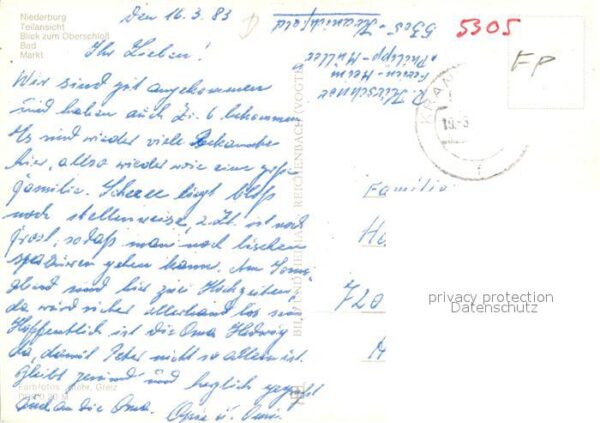 Niederburg
Teilansicht
Blick zum Oberschloß
Bad
Markt
Den 16.3.83
Ihr Lieben!
Wir sind gut angekommen
und haben auch Zi. 6 bekommen
Es sind wieder viele Bekannte
hier, also wieder wie eine große
Familie. Schnee liegt bloß
noch stellenweise, z.Zt. ist noch
Frost, sodaß man noch bischen
spazieren gehen kann. Am Sonn-
abend sind hier zwei Hochzeiten,
da wird sicher allerhand los sein
Hoffentlich ist die Oma Hedwig
da, damit Peter nicht so allein ist.
Bleibt gesund und herzlich gegrüßt
auch an die Oma. Opa u. Omi.
5305
5305 - Kranichfeld
"Philipp-Müller"
Ferien-Heim
FP
KRAN
19.-3
BILD UND HEIMAT REICHENBACH (VOGTL
Familie
720
privacy protection
Datenschutz